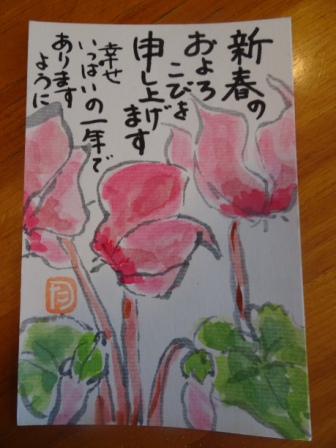 新春の
およろ
こびを
申し上げ
ます
幸せ
いっぱいの一年で
あります
ように